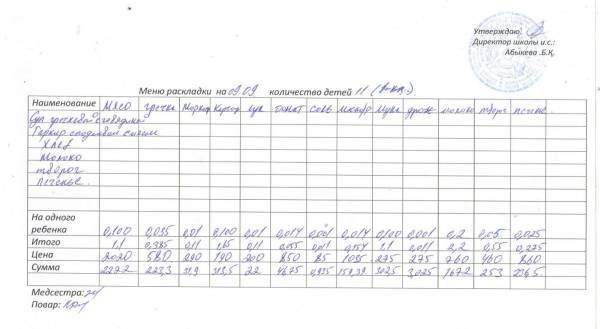 Утверждаю:
Директор школы и.с.:
Абыкева .Б.Қ.
Меню раскладки на 09.09 количество детей 11
Наименование мясо гречка морков картоф лук томат соль мука дрож молоко творог печенье
Суп гречневый с говядины
Гарнир
Хлеб
Молоко
творог
Печенье
На одного
ребенка 0,100 0,035 0,01 0,100 0,01 0,014 0,001 0,014 0,100 0,001 0,2 0,05 0,025
Итого 1,1 0,385 0,11 0,11 0,154 1,1 0,011 2,2 0,55 0,275
Цена 2020 580 290 190 200 850 85 1035 275 275 760 460 860
Сумма 2222 223,3 31,9 22 0,935 159,39 302,5 3,025 1672 253 236,5
Медсестра:
Повар: